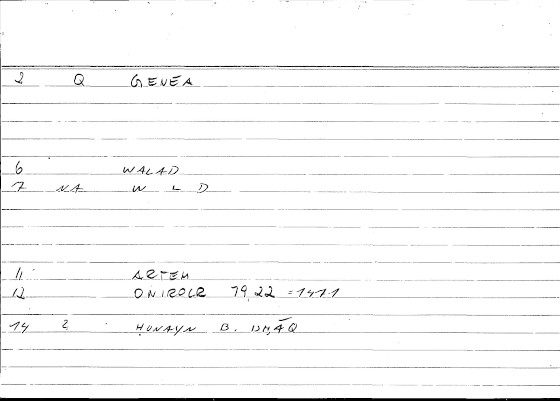 2 Q GENEA
6 WALAD
7 NA W L D
11 ARTEM
12 ONIROCR 79,22 =141.1
14 2 ḤUNAYN B. ISḤĀQ